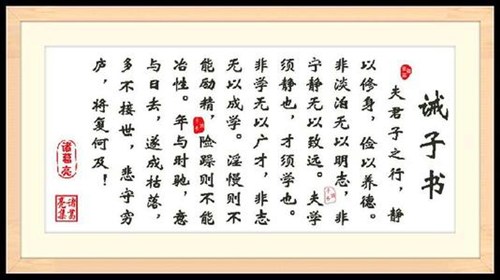 诫子书
夫君子之行，静
以修身，俭以养德。
非淡泊无以明志，非
宁静无以致远。夫学
须静也，才须学也。
非学无以广才，非志
无以成学。淫慢则不
能励精，险躁则不能
冶性。年与时驰，意
与日去，遂成枯落，
多不接世，悲守穷
庐，将复何及！
诸葛亮
诸葛
亮集